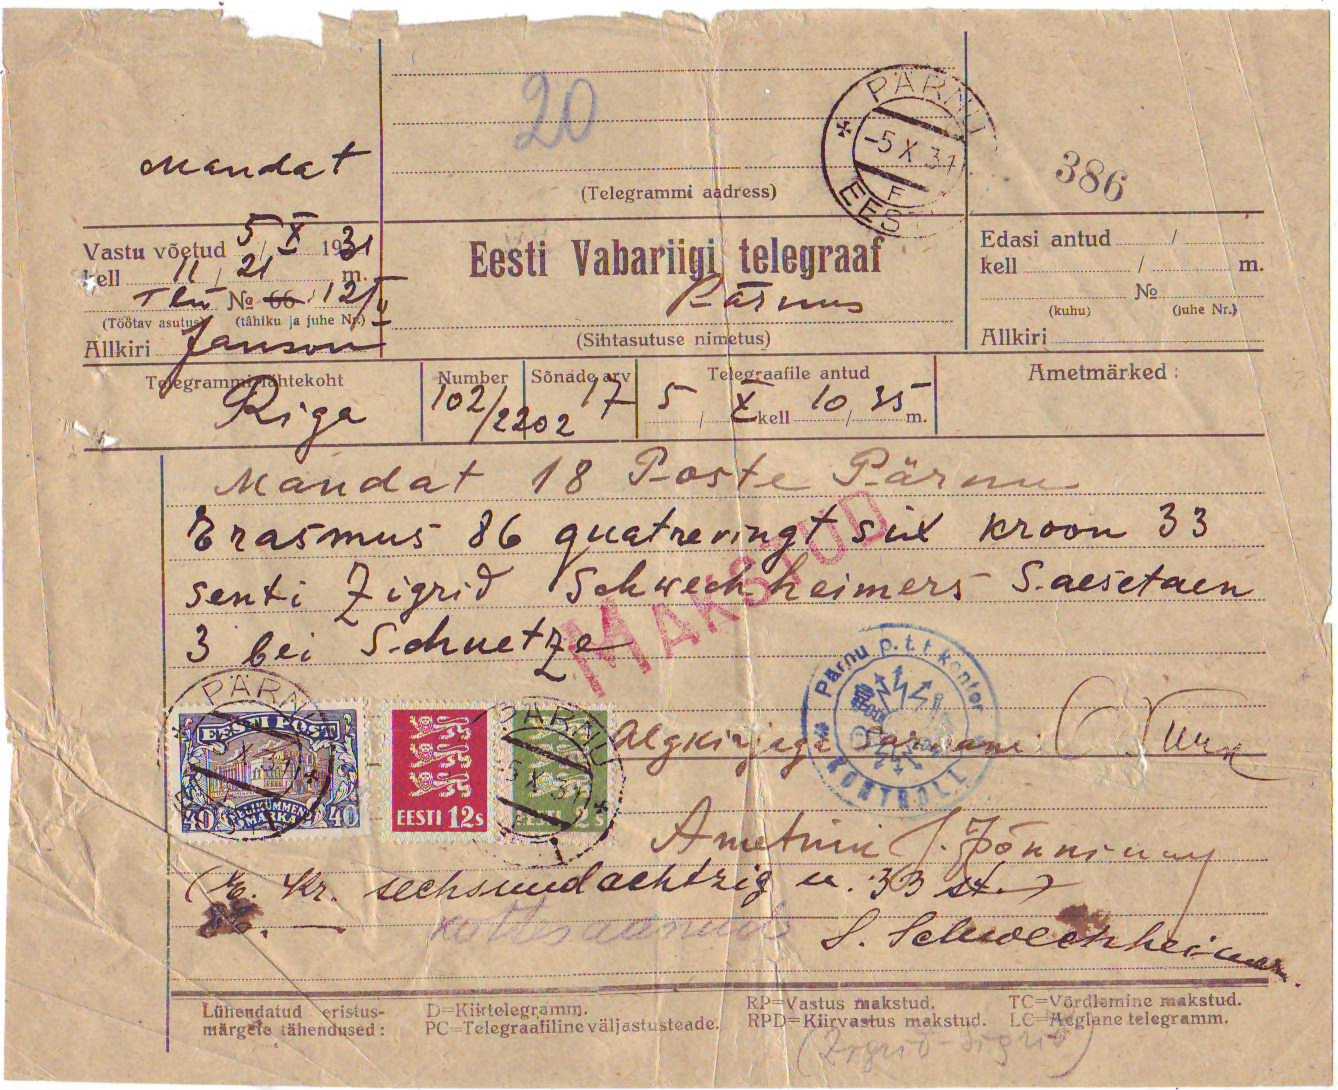 20
Mandat
(Telegrammi aadress)
PÄRNU
-5 X 31
F
EESTI
386
Vastu võetud 5/X 1931
kell 11/21 m.
Tln № 66 12/II
(Töötav asutus) (tähiku ja juhe Nr.)
Allkiri Janson
Eesti Vabariigi telegraaf
Pärnus
(Sihtasutuse nimetus)
Edasi antud /
kell / m.
№
(kuhu) (juhe Nr.)
Allkiri
Telegrammi lähtekoht
Riga
Number
102/2202
Sõnade arv
17
Telegraafile antud
5/X kell 10/35 m.
Ametmärked:
Mandat 18 Poste Pärnu
Erasmus 86 quatrevingt six kroon 33
senti Zigrid Schwechheimers Saesetaen
3 bei Schuetze
MAKSTUD
Pärnu p. t. t. kontor
KONTROLL
PÄRNU
X 31
EESTI POST
40 NELIKÜMMEND MARKA 40
EESTI 12s
EESTI 2s
PÄRNU
-5 X 31
Algkirjaga sarnane:
Ametnik J. Jõnninay
(E. Kr. sechsundachtzig u. 33 st.)
86.—
kättesaanud
S. Schwechheimer
Lühendatud eristus-
märgete tähendused:
D=Kiirtelegramm.
PC=Telegraafiline väljastusteade.
RP=Vastus makstud.
RPD=Kiirvastus makstud.
TC=Võrdlemine makstud.
LC=Aeglane telegramm.
(Zigrid-Sigrid)